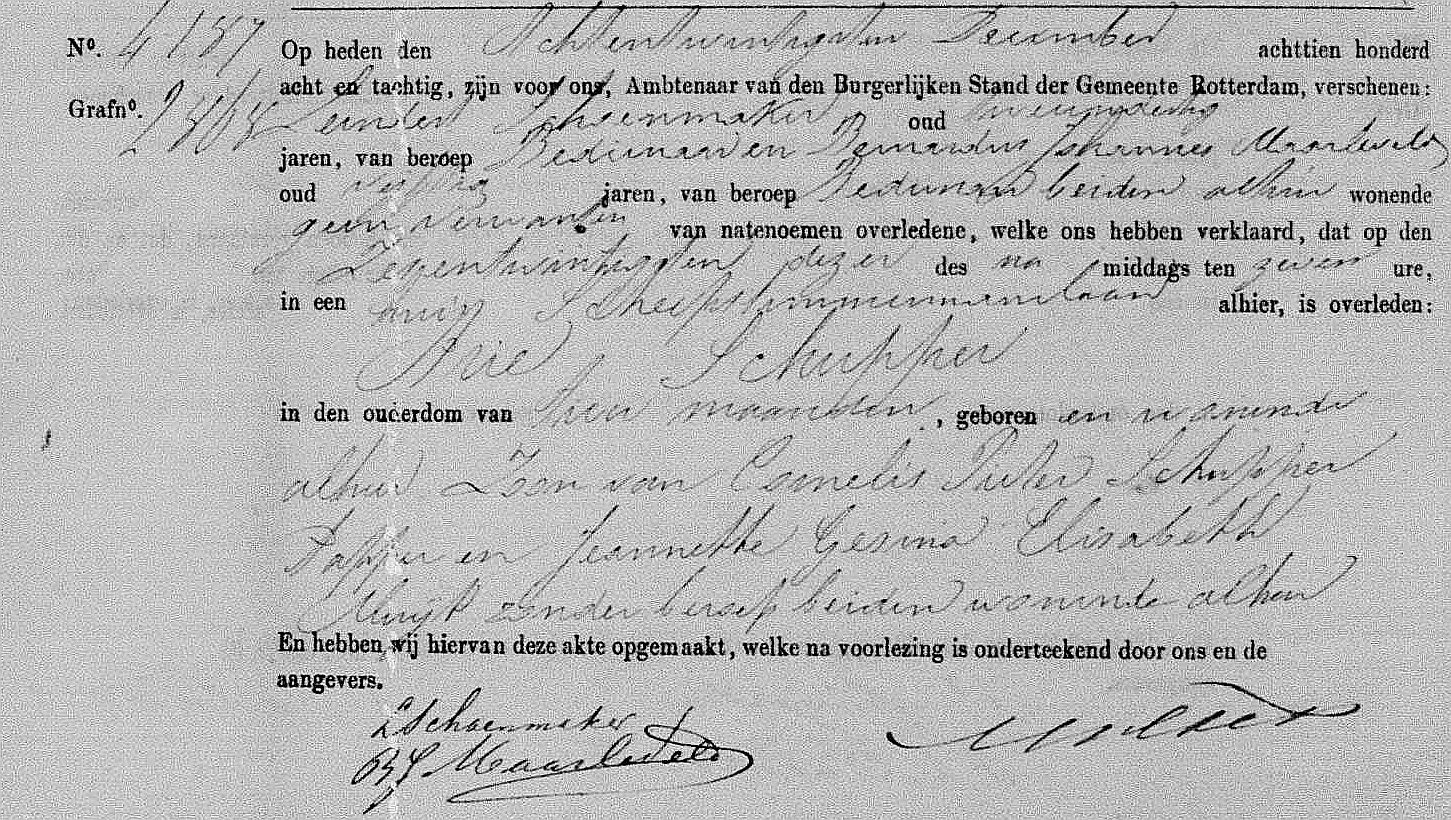 Nº. 4187 Op heden den Achtentwintigsten December achttien honderd
acht en tachtig, zijn voor ons, Ambtenaar van den Burgerlijken Stand der Gemeente Rotterdam, verschenen:
Grafnº. Leendert Schoenmaker oud
jaren, van beroep Bedienaar en Bernardus Johannes Maarleveld
oud vijftig jaren, van beroep Bedienaar beiden alhier wonende
geen verwanten van natenoemen overledene, welke ons hebben verklaard, dat op den
Zeventwintigsten dezer des na middags ten zeven ure,
in een huis Scheepstimmermanslaan alhier, is overleden:
Arie Schipper
in den ouderdom van twee maanden, geboren en wonende
alhier Zoon van Cornelis Pieter Schipper
Tapper en Jeannette Gesina Elisabeth
zonder beroep beiden wonende alhier
En hebben wij hiervan deze akte opgemaakt, welke na voorlezing is onderteekend door ons en de
aangevers.
L Schoenmaker
B J Maarleveld